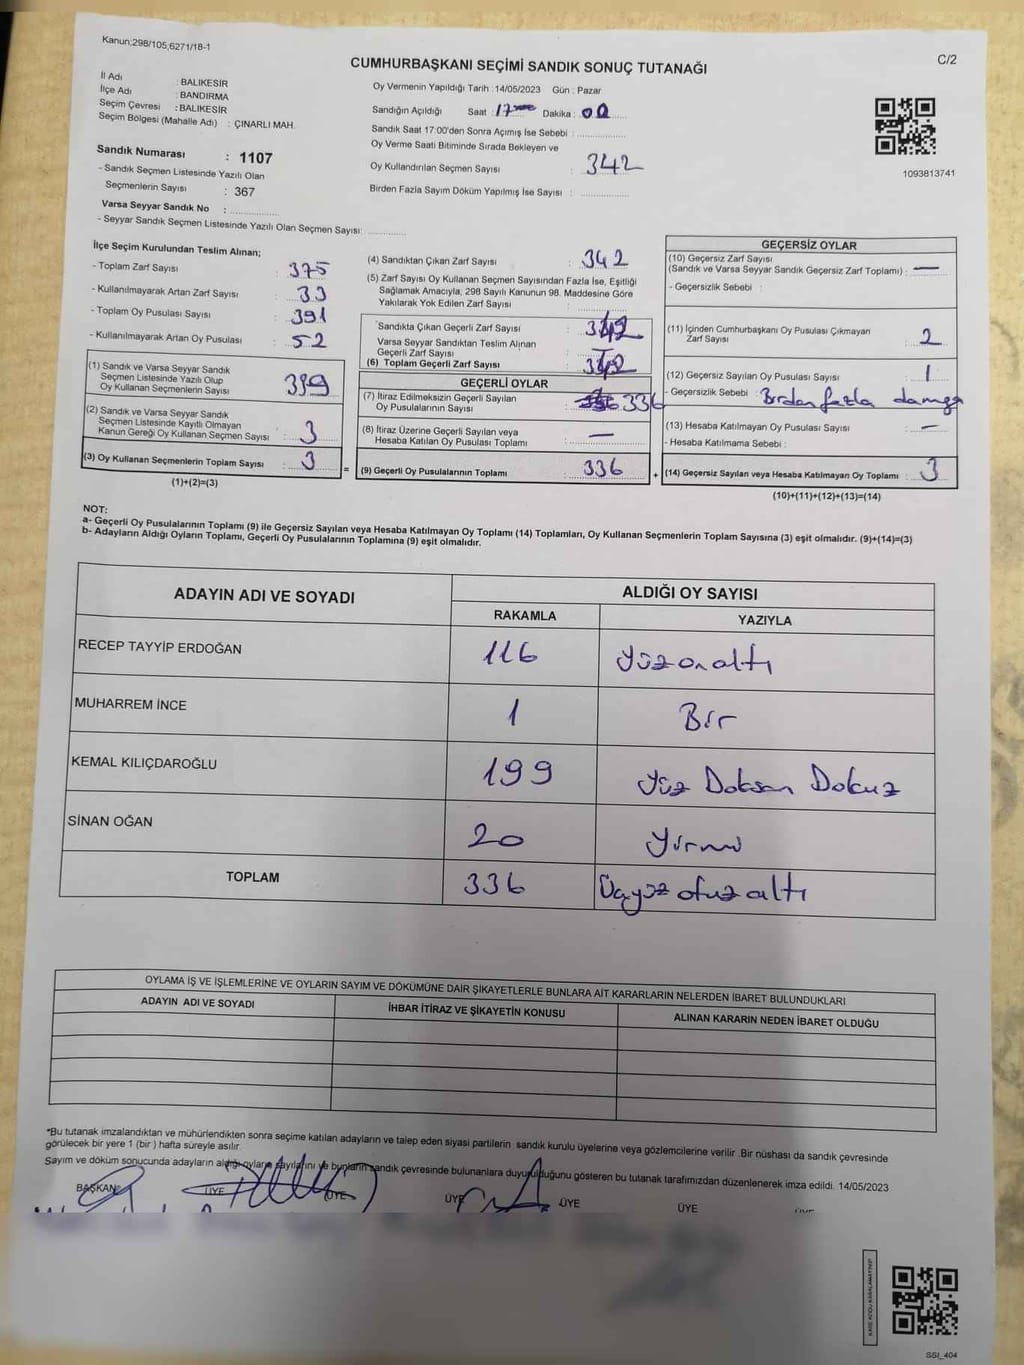 Kanun;298/105;6271/18-1
C/2
CUMHURBAŞKANI SEÇİMİ SANDIK SONUÇ TUTANAĞI
İl Adı : BALIKESİR
İlçe Adı : BANDIRMA
Seçim Çevresi : BALIKESİR
Seçim Bölgesi (Mahalle Adı) : ÇINARLI MAH.
Sandık Numarası : 1107
- Sandık Seçmen Listesinde Yazılı Olan
Seçmenlerin Sayısı : 367
Varsa Seyyar Sandık No :
- Seyyar Sandık Seçmen Listesinde Yazılı Olan Seçmen Sayısı:
Oy Vermenin Yapıldığı Tarih :14/05/2023 Gün : Pazar
Sandığın Açıldığı Saat : 17 Dakika : 00
Sandık Saat 17:00'den Sonra Açımış İse Sebebi :
Oy Verme Saati Bitiminde Sırada Bekleyen ve
Oy Kullandırılan Seçmen Sayısı : 342
Birden Fazla Sayım Döküm Yapılmış İse Sayısı :
1093813741
İlçe Seçim Kurulundan Teslim Alınan;
- Toplam Zarf Sayısı : 375
- Kullanılmayarak Artan Zarf Sayısı : 33
- Toplam Oy Pusulası Sayısı : 391
- Kullanılmayarak Artan Oy Pusulası : 52
(1) Sandık ve Varsa Seyyar Sandık
Seçmen Listesinde Yazılı Olup
Oy Kullanan Seçmenlerin Sayısı : 339
(2) Sandık ve Varsa Seyyar Sandık
Seçmen Listesinde Kayıtlı Olmayan
Kanun Gereği Oy Kullanan Seçmen Sayısı : 3
(3) Oy Kullanan Seçmenlerin Toplam Sayısı : 3
(1)+(2)=(3)
(4) Sandıktan Çıkan Zarf Sayısı : 342
(5) Zarf Sayısı Oy Kullanan Seçmen Sayısından Fazla İse, Eşitliği
Sağlamak Amacıyla, 298 Sayılı Kanunun 98. Maddesine Göre
Yakılarak Yok Edilen Zarf Sayısı :
Sandıkta Çıkan Geçerli Zarf Sayısı : 342
Varsa Seyyar Sandıktan Teslim Alınan
Geçerli Zarf Sayısı :
(6) Toplam Geçerli Zarf Sayısı : 342
GEÇERLİ OYLAR
(7) İtiraz Edilmeksizin Geçerli Sayılan
Oy Pusulalarının Sayısı : 336
(8) İtiraz Üzerine Geçerli Sayılan veya
Hesaba Katılan Oy Pusulası Toplamı : —
(9) Geçerli Oy Pusulalarının Toplamı : 336
GEÇERSİZ OYLAR
(10) Geçersiz Zarf Sayısı
(Sandık ve Varsa Seyyar Sandık Geçersiz Zarf Toplamı) : —
- Geçersizlik Sebebi :
(11) İçinden Cumhurbaşkanı Oy Pusulası Çıkmayan
Zarf Sayısı : 2
(12) Geçersiz Sayılan Oy Pusulası Sayısı : 1
- Geçersizlik Sebebi : Birden fazla damga
(13) Hesaba Katılmayan Oy Pusulası Sayısı : —
- Hesaba Katılmama Sebebi :
(14) Geçersiz Sayılan veya Hesaba Katılmayan Oy Toplamı : 3
(10)+(11)+(12)+(13)=(14)
NOT:
a- Geçerli Oy Pusulalarının Toplamı (9) ile Geçersiz Sayılan veya Hesaba Katılmayan Oy Toplamı (14) Toplamları, Oy Kullanan Seçmenlerin Toplam Sayısına (3) eşit olmalıdır. (9)+(14)=(3)
b- Adayların Aldığı Oyların Toplamı, Geçerli Oy Pusulalarının Toplamına (9) eşit olmalıdır.
ADAYIN ADI VE SOYADI
ALDIĞI OY SAYISI
RAKAMLA YAZIYLA
RECEP TAYYİP ERDOĞAN 116 Yüzonaltı
MUHARREM İNCE 1 Bir
KEMAL KILIÇDAROĞLU 199 Yüz Doksan Dokuz
SİNAN OĞAN 20 Yirmi
TOPLAM 336 Üçyüz otuz altı
OYLAMA İŞ VE İŞLEMLERİNE VE OYLARIN SAYIM VE DÖKÜMÜNE DAİR ŞİKAYETLERLE BUNLARA AİT KARARLARIN NELERDEN İBARET BULUNDUKLARI
ADAYIN ADI VE SOYADI İHBAR İTİRAZ VE ŞİKAYETİN KONUSU ALINAN KARARIN NEDEN İBARET OLDUĞU
*Bu tutanak imzalandıktan ve mühürlendikten sonra seçime katılan adayların ve talep eden siyasi partilerin sandık kurulu üyelerine veya gözlemcilerine verilir .Bir nüshası da sandık çevresinde
görülecek bir yere 1 (bir ) hafta süreyle asılır.
Sayım ve döküm sonucunda adayların aldığı oyların sayılarını ve bunların sandık çevresinde bulunanlara duyurulduğunu gösteren bu tutanak tarafımızdan düzenlenerek imza edildi. 14/05/2023
BAŞKAN ÜYE ÜYE ÜYE ÜYE ÜYE
SSI_404